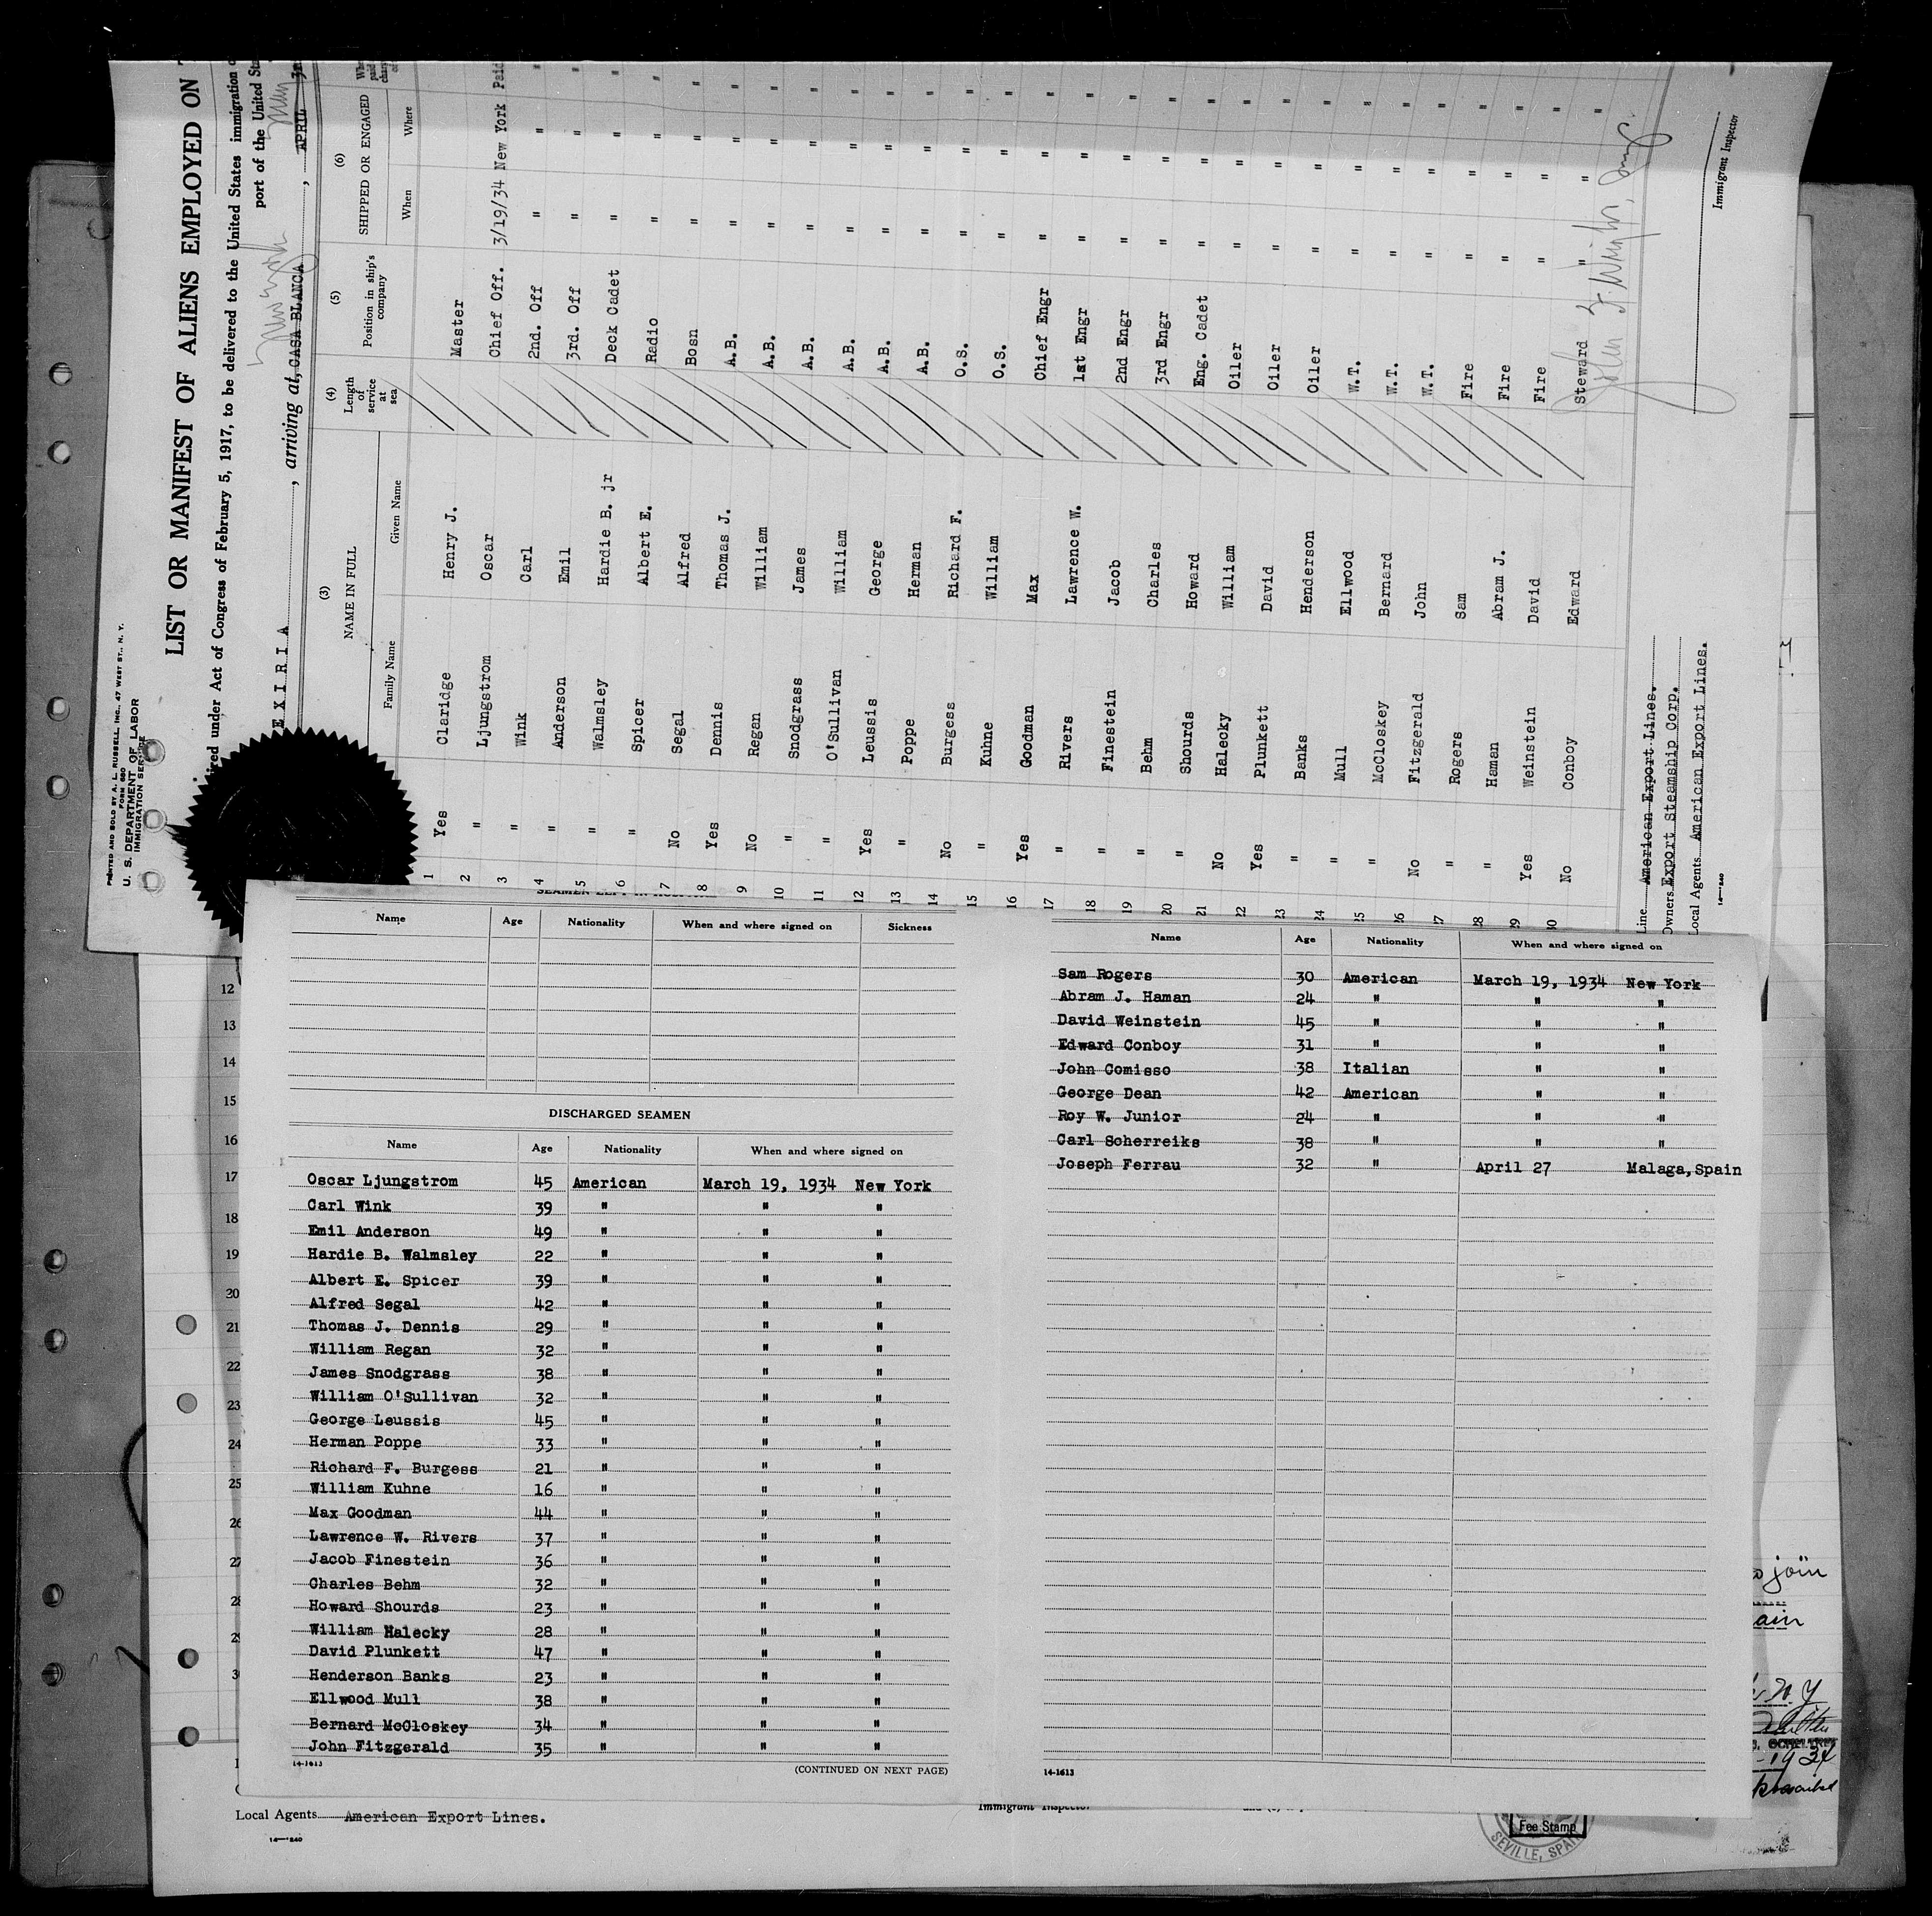 PRINTED AND SOLD BY A. L. RUSSELL, INC., 47 WEST ST., N. Y.
FORM 680
U. S. DEPARTMENT OF LABOR
IMMIGRATION SERVICE
LIST OR MANIFEST OF ALIENS EMPLOYED ON
under Act of Congress of February 5, 1917, to be delivered to the United States immigration
port of the United
EXIRIA, arriving at, CASA BLANCA, APRIL
(3) NAME IN FULL (4) Length of service at sea (5) Position in ship's company (6) SHIPPED OR ENGAGED
Family Name Given Name When Where
1 Yes Claridge Henry J. Master
2 " Ljungstrom Oscar Chief Off. 3/19/34 New York Paid
3 " Wink Carl 2nd. Off " " "
4 " Anderson Emil 3rd. Off " " "
5 " Walmsley Hardie B. jr Deck Cadet " " "
6 " Spicer Albert E. Radio " " "
7 No Segal Alfred Bosn " " "
8 Yes Dennis Thomas J. A.B. " " "
9 No Regan William A.B. " " "
10 " Snodgrass James A.B. " " "
11 " O'Sullivan William A.B. " " "
12 Yes Leussis George A.B. " " "
13 " Poppe Herman A.B. " " "
14 No Burgess Richard F. O.S. " " "
15 " Kuhne William O.S. " " "
16 Yes Goodman Max Chief Engr " " "
17 " Rivers Lawrence W. 1st Engr " " "
18 " Finestein Jacob 2nd Engr " " "
19 " Behm Charles 3rd Engr " " "
20 " Shourds Howard Eng. Cadet " " "
21 No Halecky William Oiler " " "
22 Yes Plunkett David Oiler " " "
23 " Banks Henderson Oiler " " "
24 " Mull Ellwood W.T. " " "
25 " McCloskey Bernard W.T. " " "
26 No Fitzgerald John W.T. " " "
27 " Rogers Sam Fire " " "
28 " Haman Abram J. Fire " " "
29 Yes Weinstein David Fire " " "
30 No Conboy Edward Steward " " "
Line American Export Lines.
Owners Export Steamship Corp.
Local Agents American Export Lines.
14-1240
Immigrant Inspector
Name Age Nationality When and where signed on Sickness
DISCHARGED SEAMEN
Name Age Nationality When and where signed on
Oscar Ljungstrom 45 American March 19, 1934 New York
Carl Wink 39 " " "
Emil Anderson 49 " " "
Hardie B. Walmsley 22 " " "
Albert E. Spicer 39 " " "
Alfred Segal 42 " " "
Thomas J. Dennis 29 " " "
William Regan 32 " " "
James Snodgrass 38 " " "
William O'Sullivan 32 " " "
George Leussis 45 " " "
Herman Poppe 33 " " "
Richard F. Burgess 21 " " "
William Kuhne 16 " " "
Max Goodman 44 " " "
Lawrence W. Rivers 37 " " "
Jacob Finestein 36 " " "
Charles Behm 32 " " "
Howard Shourds 23 " " "
William Halecky 28 " " "
David Plunkett 47 " " "
Henderson Banks 23 " " "
Ellwood Mull 38 " " "
Bernard McCloskey 34 " " "
John Fitzgerald 35 " " "
14-1613 (CONTINUED ON NEXT PAGE)
Name Age Nationality When and where signed on
Sam Rogers 30 American March 19, 1934 New York
Abram J. Haman 24 " " "
David Weinstein 45 " " "
Edward Conboy 31 " " "
John Comisso 38 Italian " "
George Dean 42 American " "
Roy W. Junior 24 " " "
Carl Scherreiks 38 " " "
Joseph Ferrau 32 " April 27 Malaga, Spain
14-1613
12
13
14
15
16
17
18
19
20
21
22
23
24
25
26
27
join
N.Y
1934
Local Agents American Export Lines.
Immigrant Inspector
Fee Stamp
SEVILLE, SPAIN